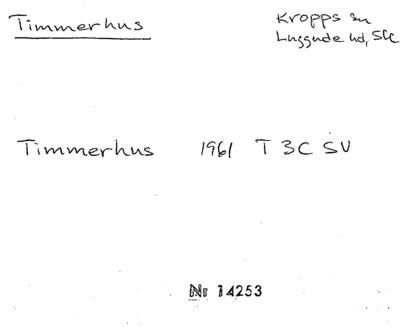 Timmerhus
Kropps sn
Luggude hd, Sk
Timmerhus 1961 T 3C SV
Nr 14253